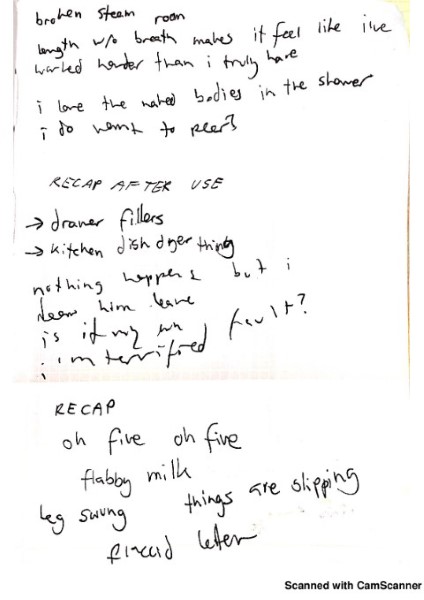 broken steam room
length w/o breath makes it feel like i've
worked harder than i truly have
i love the naked bodies in the shower
i do want to
RECAP AFTER USE
→ drawer fillers
→ kitchen dish dryer thing
nothing happens but i
him leave
is it my own fault?
i'm terrified
RECAP
oh five oh five
flabby milk
leg swung things are slipping
flaccid
Scanned with CamScanner